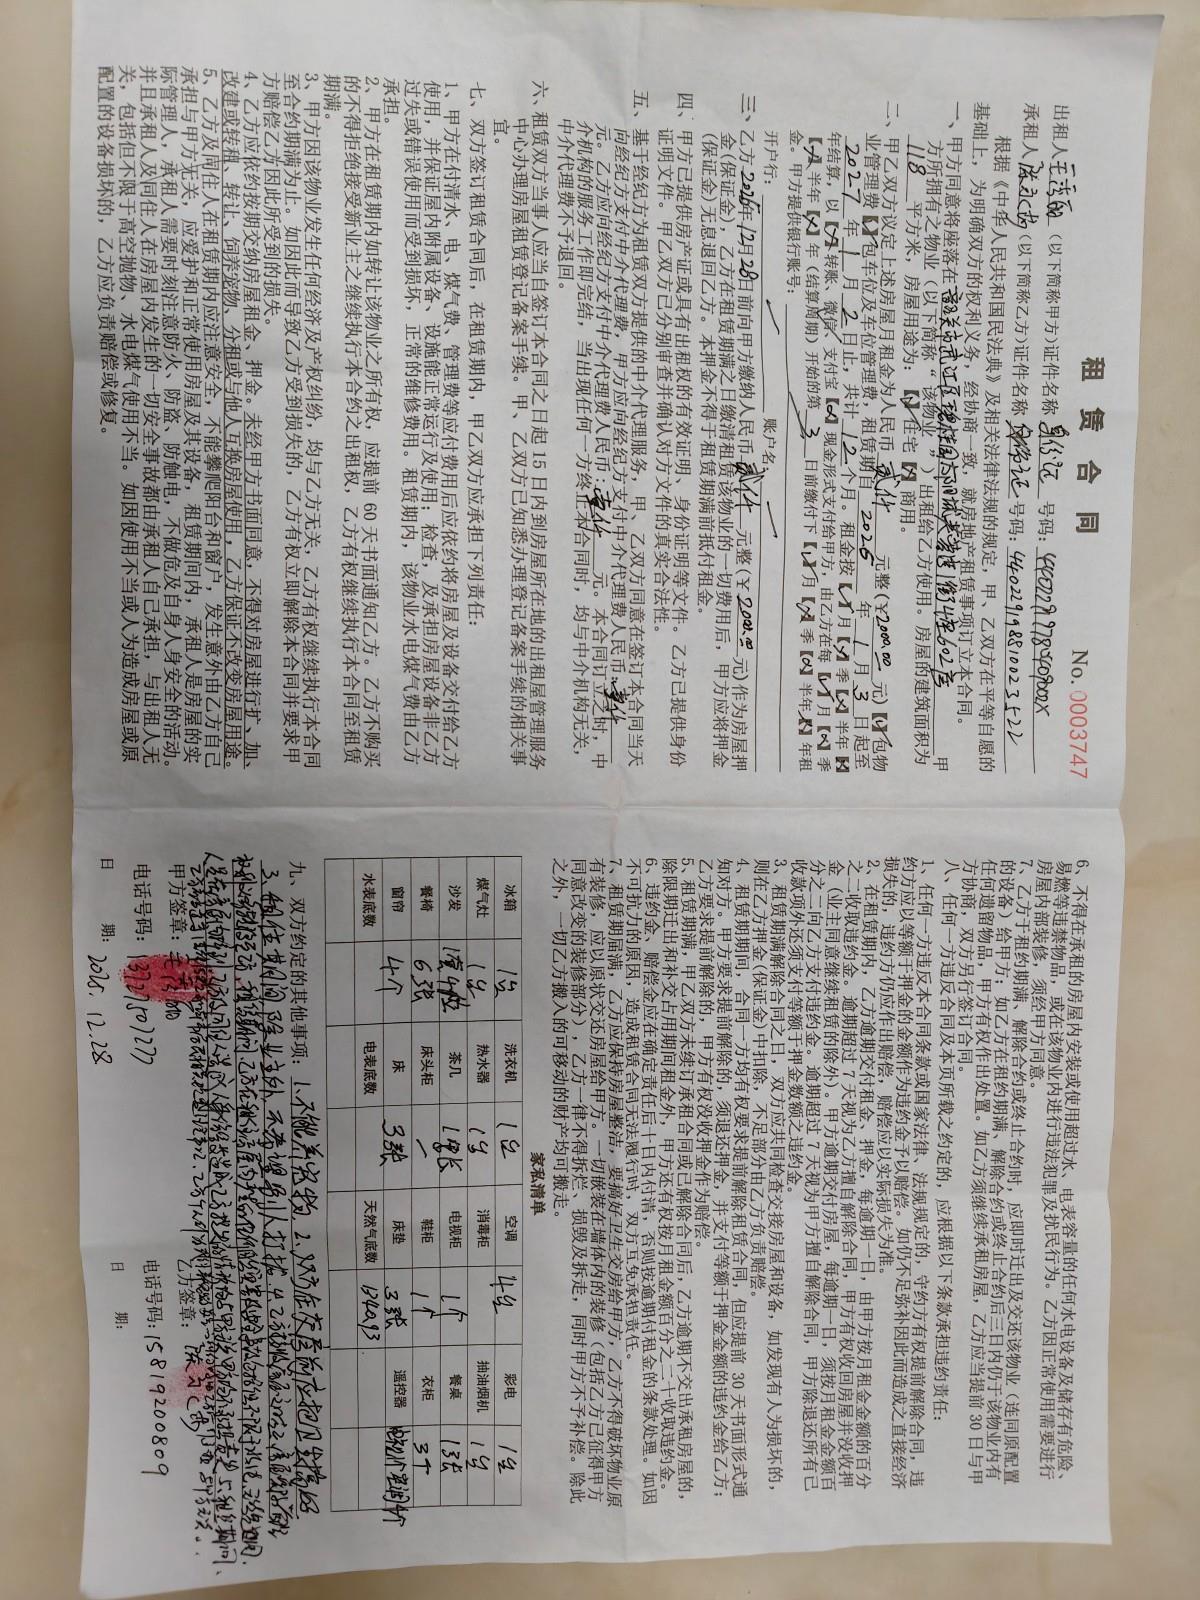 租 赁 合 同
No. 0003747
出租人 (以下简称甲方)证件名称 身份证 号码:
承租人 (以下简称乙方)证件名称 身份证 号码: 440229198810023522
根据《中华人民共和国民法典》及相关法律法规的规定,甲、乙双方在平等自愿的
基础上,为明确双方的权利义务,经协商一致,就房地产租赁事项订立本合同。
一、甲方同意将座落在 602房 甲
方所拥有之物业(以下简称“该物业”)出租给乙方使用。房屋的建筑面积为
118 平方米,房屋用途为:【√】住宅【×】商用。
二、甲乙双方议定上述房屋月租金为人民币 贰仟 元整(¥2000.00 元)【×】包物
业管理费【×】包车位及车位管理费,租赁期自 2026 年 1 月 3 日起至
2027 年 1 月 2 日止,共计 12 个月。租金按【√】月【×】季【×】半年【×】
年结算,以【√】转账、微信、支付宝【×】现金形式支付给甲方,由乙方在每【√】月【×】季
【×】半年【×】年(结算周期)开始的第 3 日前缴付下【√】月【×】季【×】半年【×】年租
金。甲方提供银行账号:
开户行: 账户名:
三、乙方 2025年12月28日前向甲方缴纳人民币 贰仟 元整(¥ 2000.00 元)作为房屋押
金(保证金),在租赁期满之日缴清租赁该物业的一切费用后,甲方应将押金
(保证金)无息退回乙方。本押金不得于租赁期满前抵付租金。
四、甲方已提供房产证或具有出租权的有效证明、身份证明等文件。乙方已提供身份
证明文件。甲乙双方已分别审查并确认对方文件的真实合法性。
五、基于经纪方为租赁双方提供的中介代理服务,甲、乙双方同意在签订本合同当天
向经纪方支付中介代理费,甲方应向经纪方支付中介代理费人民币: 壹仟
元。乙方应向经纪方支付中介代理费人民币: 壹仟 元。本合同订立之时,中
介机构的服务工作即完结,当出现任何一方终止本合同时,均与中介机构无关,
中介代理费不予退回。
六、租赁双方当事人应当自签订本合同之日起 15 日内到房屋所在地的出租屋管理服务
中心办理房屋租赁登记备案手续。甲、乙双方已知悉办理登记备案手续的相关事
宜。
七、双方签订租赁合同后,在租赁期内,甲乙双方应承担下列责任:
1、甲方在付清水、电、煤气费、管理费等应付费用后应依约将房屋及设备交付给乙方
使用,并保证屋内附属设备、设施能正常运行及使用;检查,及承担房屋设备非乙方
过失或错误使用而受到损坏,正常的维修费用。租赁期内,该物业水电煤气费由乙方
承担。
2、甲方在租赁期内如转让该物业之所有权,应提前 60 天书面通知乙方。乙方不购买
的不得拒绝接受新业主之继续执行本合约之出租权,乙方有权继续执行本合同至租赁
期满。
3、甲方因该物业发生任何经济及产权纠纷,均与乙方无关,乙方有权继续执行本合同
至合约期满为止。如因此而导致乙方受到损失的,乙方有权立即解除本合同并要求甲
方赔偿乙方因此所受到的损失。
4、乙方应依约按期交纳房屋租金、押金。未经甲方书面同意,不得对房屋进行扩、加、
改建或转租、转让、饲养宠物、分租或与他人互换房屋使用,乙方保证不改变房屋用途。
5、乙方及同住人在租赁期内应注意安全,不能攀爬阳台和窗户,发生意外由乙方自己
承担与甲方无关,应爱护和正常使用房屋及其设备,租赁期间内,承租人是房屋的实
际管理人,承租人需要时刻注意防火、防盗、防触电,不做危及自身人身安全的活动。
并且承租人及同住人在房屋内发生的一切安全事故都由承租人自己承担,与出租人无
关,包括但不限于高空抛物、水电煤气使用不当。如因使用不当或人为造成房屋或原
配置的设备损坏的,乙方应负责赔偿或修复。
6、不得在承租的房屋内安装或使用超过水、电表容量的任何水电设备及储存有危险、
易燃等违禁物品,或在该物业内进行违法犯罪及扰民行为。乙方因正常使用需要进行
房屋内部装修,须经甲方同意。
7、乙方于租约期满、解除合约或终止合约时,应即时迁出及交还该物业(连同原配置
的设备)给甲方;如乙方在租约期满、解除合约或终止合约后三日内仍于该物业内有
任何遗留物品,甲方有权作出处置。如乙方须继续承租房屋,乙方应当提前 30 日与甲
方协商,双方另行签订合同。
八、任何一方违反本合同条款及本页所载之约定的,应根据以下条款承担违约责任:
1、任何一方违反本合同条款或国家法律、法规规定的,守约方有权提前解除合同,违
约方应以等额于押金的金额作为违约金予以赔偿。如仍不足弥补因此而造成之直接经济
损失的,违约方仍应作出赔偿,赔偿应以实际损失为准。
2、在租赁期内,乙方逾期交付租金、押金,每逾期一日,由甲方按月租金金额的百分
之二收取违约金。逾期超过 7 天视为乙方擅自解除合同,甲方有权收回房屋并没收押
金(业主同意继续租赁的除外)。甲方逾期交付房屋,每逾期一日,须按月租金金额百
分之二向乙方支付违约金。逾期超过 7 天视为甲方擅自解除合同,甲方除退还所有已
收款项外还须支付等额于押金数额之违约金。
3、租赁期满解除合同之日,双方应共同检查交接房屋和设备,如发现有人为损坏的,
则在乙方押金(保证金)中扣除,不足部分由乙方负责赔偿。
4、租赁期期间,合同一方均有权要求提前解除租赁合同,但应提前 30 天书面形式通
知对方。甲方要求提前解除的,须退还押金,并支付等额于押金金额的违约金给乙方;
乙方要求提前解除的,甲方有权没收押金作为赔偿。
5、租赁期满,甲乙双方未续订承租合同或已解除合同后,乙方逾期不交出承租房屋的,
除限期迁出和补交占用期间租金外,甲方还有权按月租金额百分之二十收取违约金。
6、违约金、赔偿金应在确定责任后十日内付清,否则按逾期付租金的条款处理。如因
不可抗力的原因,造成或租赁合同无法履行时,双方互免承担责任。
7、租赁期届满,乙方应保持房屋整洁,要搞好卫生交房给甲方,乙方不得破坏物业原
有装修,应以原状交还房屋给甲方。一切嵌装在墙体内的装修(包括乙方已征得甲方
同意改变的装修部分),乙方一律不得拆烂、损毁及拆走,同时甲方不予补偿。除此
之外,一切乙方搬入的可移动的财产均可搬走。
家私清单
冰箱 1台 洗衣机 1台 空调 4台 彩电 1台
煤气灶 1台 热水器 1台 消毒柜 抽油烟机 1台
沙发 茶几 电视柜 1个 餐桌 1张
餐椅 6张 床头柜 鞋柜 1个 衣柜 3个
窗帘 4个 床 3张 床垫 3张 遥控器
水表底数 电表底数 天然气底数 1340.93
九、双方约定的其他事项: 1.不能养宠物, 2.
3.
甲方签章: 乙方签章:
电话号码: 电话号码: 15819200809
日 期: 2025.12.28 日 期: